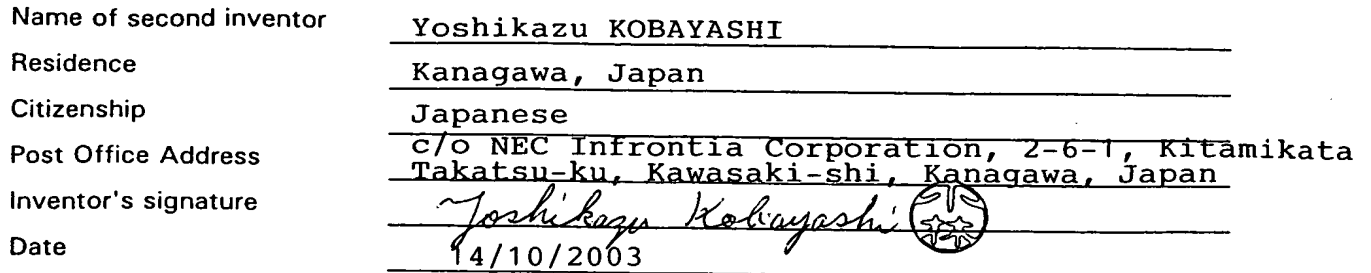 Name of second inventor Yoshikazu KOBAYASHI
Residence Kanagawa, Japan
Citizenship Japanese
Post Office Address c/o NEC Infrontia Corporation, 2-6-1, Kitamikata
Takatsu-ku, Kawasaki-shi, Kanagawa, Japan
Inventor's signature Yoshikazu Kobayashi
Date 14/10/2003